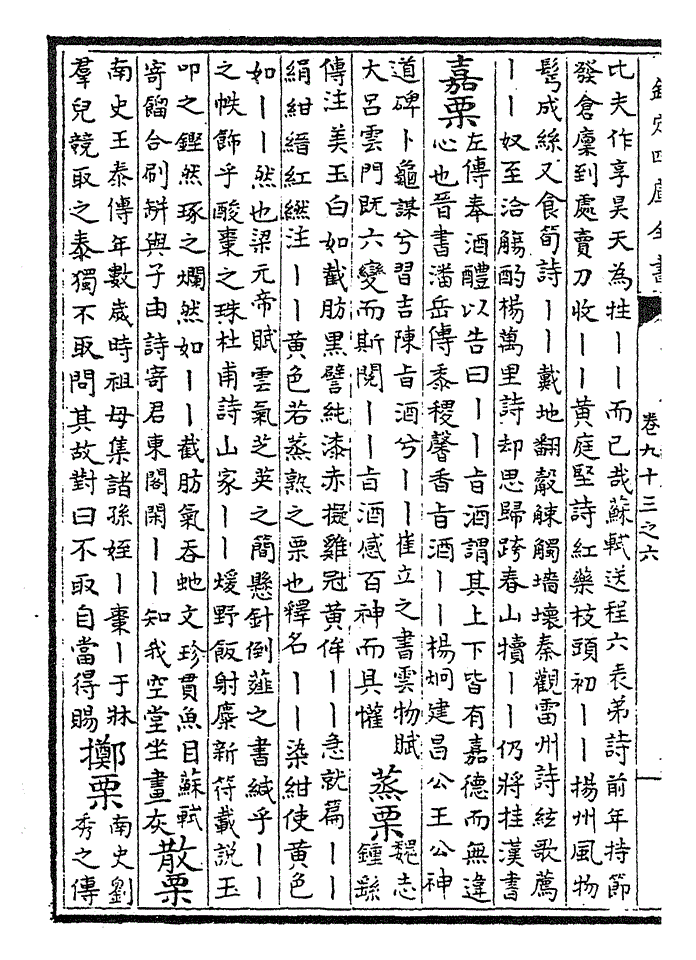 欽定四庫全書 卷九十三之六
匕夫作享昊天為牲丨丨而已哉蘇軾送程六表弟詩前年持節
發倉廩到處賣刀收丨丨黃庭堅詩紅藥枝頭初丨丨揚州風物
鬂成絲又食筍詩丨丨戴地翻觳觫觸墻壞秦觀雷州詩絃歌薦
丨丨奴至洽觴酌楊萬里詩却思歸跨春山犢丨丨仍將挂漢書
嘉栗
左傳奉酒醴以告曰丨丨旨酒謂其上下皆有嘉德而無違
心也晉書潘岳傳黍稷馨香旨酒丨丨楊炯建昌公王公神
道碑卜龜謀兮習吉陳旨酒兮丨丨崔立之書雲物賦
大呂雲門既六變而斯閱丨丨旨酒感百神而具懽
蒸栗
魏志
鍾繇
傳注美玉白如截肪黑譬純漆赤擬雞冠黃侔丨丨急就篇丨丨
絹紺縉紅繎注丨丨黃色若蒸熟之栗也釋名丨丨染紺使黃色
如丨丨然也梁元帝賦雲氣芝英之簡懸針倒薤之書緘乎丨丨
之帙飾乎酸棗之珠杜甫詩山家丨丨煖野飯射麋新符載說玉
叩之鏗然琢之爛然如丨丨截肪氣吞虵文珍貫魚目蘇軾
寄餾合刷缾與子由詩寄君東閣閑丨丨知我空堂坐畫灰
散栗
南史王泰傳年數歲時祖母集諸孫姪丨棗丨于牀
羣兒競取之泰獨不取問其故對曰不取自當得賜
擲栗
南史劉
秀之傳